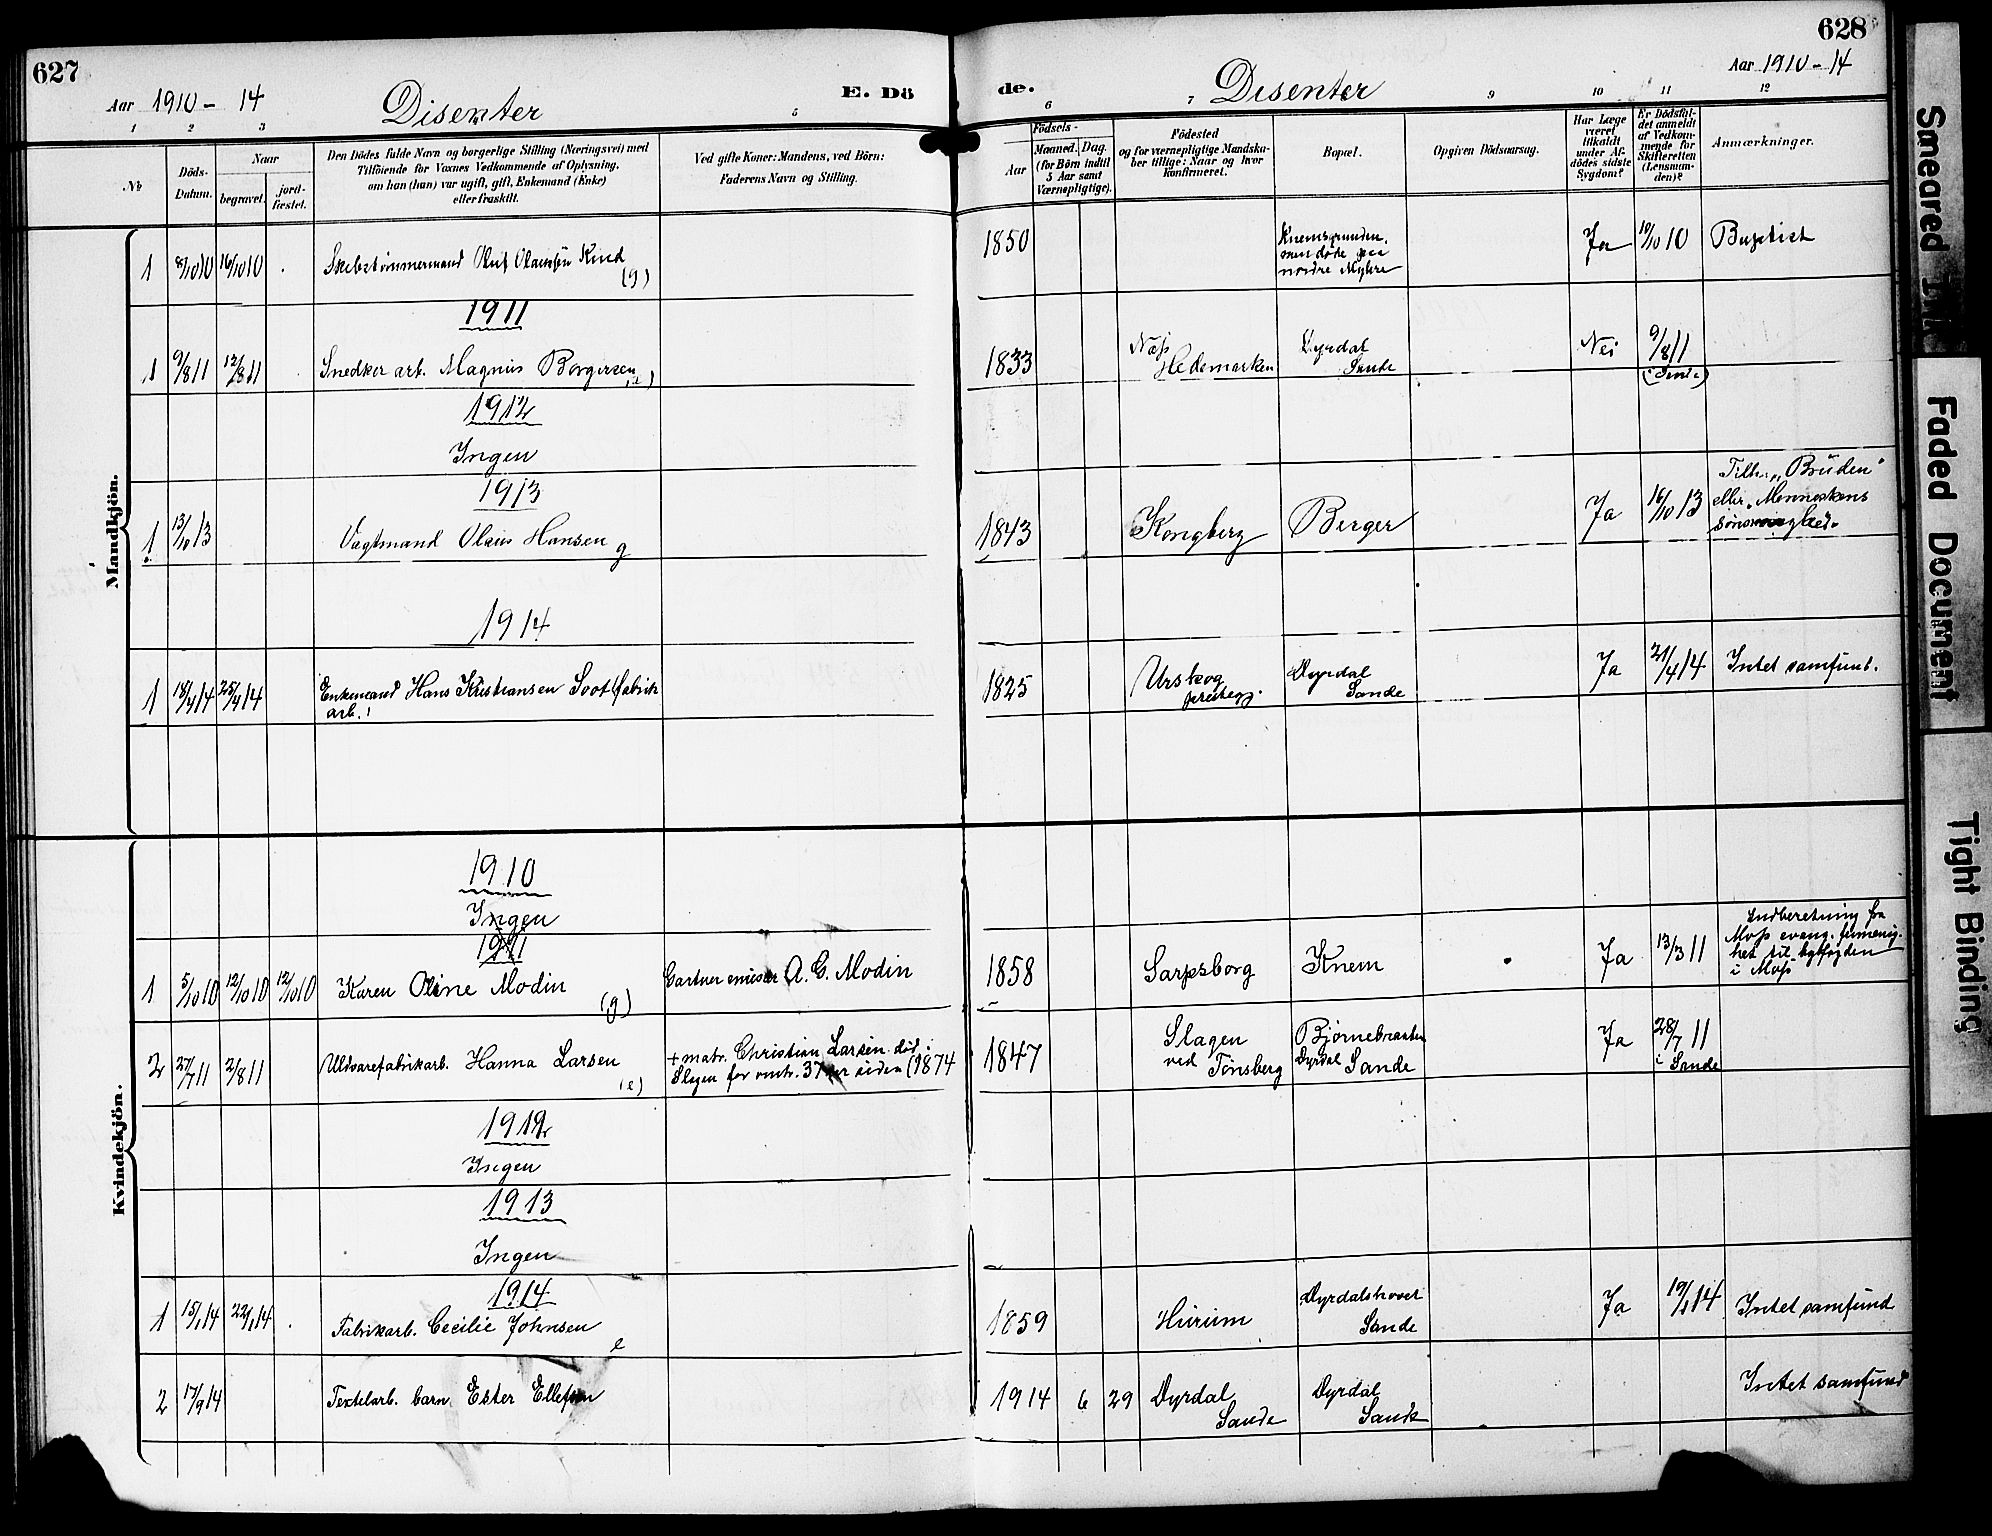 627
628
Aar 1910 - 14
Disenter
E. Dö
de.
Disenter
Aar 1910 - 14
1 2 3 5
6 7 9 10 11 12
№
Döds-
Datum.
Naar
begravet.
jord-
fæstet.
Den Dödes fulde Navn og borgerlige Stilling (Næringsvei) med
Tilföiende for Voxnes Vedkommende af Oplysning,
om han (hun) var ugift, gift, Enkemand (Enke)
eller fraskilt.
Ved gifte Koner: Mandens, ved Börn:
Faderens Navn og Stilling.
Födsels-
Aar
Maaned. Dag.
(for Börn indtil
5 Aar samt
Værnepligtige).
Födested
og for værnepligtige Mandska-
ber tillige: Naar og hvor
Konfirmeret.
Bopæl.
Opgiven Dödsaarsag.
Har Læge
været
tilkaldt
under Af-
dödes sidste
Sygdom?
Er Dödsfal-
det anmeldt
af Vedkom-
mende for
Skifteretten
(Lensman-
den)?
Anmærkninger.
Mandkjön.
1 8/10 10 16/10 10 Skibstømmermand Oluf Olaussøn Knud (g) 1850
Knemsgrunden,
men døde paa
nordre Myhre
Ja 10/10 10 Baptist
1911
1 9/8 11 12/8 11 Snedker arb. Magnus Borgersen (e) 1833
Næss
Hedemarken
Dyrdal
Sande
Nei 9/8 11
(i Sande)
1912
Ingen
1913
1 13/10 13 Vagtmand Olaus Hansen g 1843 Kongberg Berger Ja 16/10 13
Tilh. „Bruden"
eller „Menneskens
søns
1914
1 18/4 14 25/4 14 Enkemand Hans Kristiansen Soot (fabrik
arb.)
1825
Urskog
prestegj.
Dyrdal
Sande
Ja 21/4 14 Intet samfund.
Kvindekjön.
1910
Ingen
1911
1 5/10 10 12/10 10 12/10 10 Karen Oline Modin (g) Gartner emissær A. G. Modin 1858 Sarpsborg Knem Ja 13/3 11
Indberetning fra
Moss evang. frimenig-
het til byfogden
i Moss
2 27/7 11 2/8 11 Uldvarefabrikarb. Hanna Larsen (e)
+ matr. Christian Larsen død i
Slagen for omtr. 37 aar siden (1874
1847
Slagen
ved Tønsberg
Bjørnebraaten
Dyrdal Sande
Ja 28/7 11
i Sande
1912
Ingen
1913
Ingen
1914
1 15/1 14 22/1 14 Fabrikarb. Cecilie Johnsen e 1859 Hurum
Dyrdalshovet
Sande
Ja 19/1 14 Intet samfund
2 17/9 14 Textelarb. barn Ester Ellefsen 1914 6 29
Dyrdal
Sande
Dyrdal
Sande
Intet samfund
Smeared
Faded Document
Tight Binding